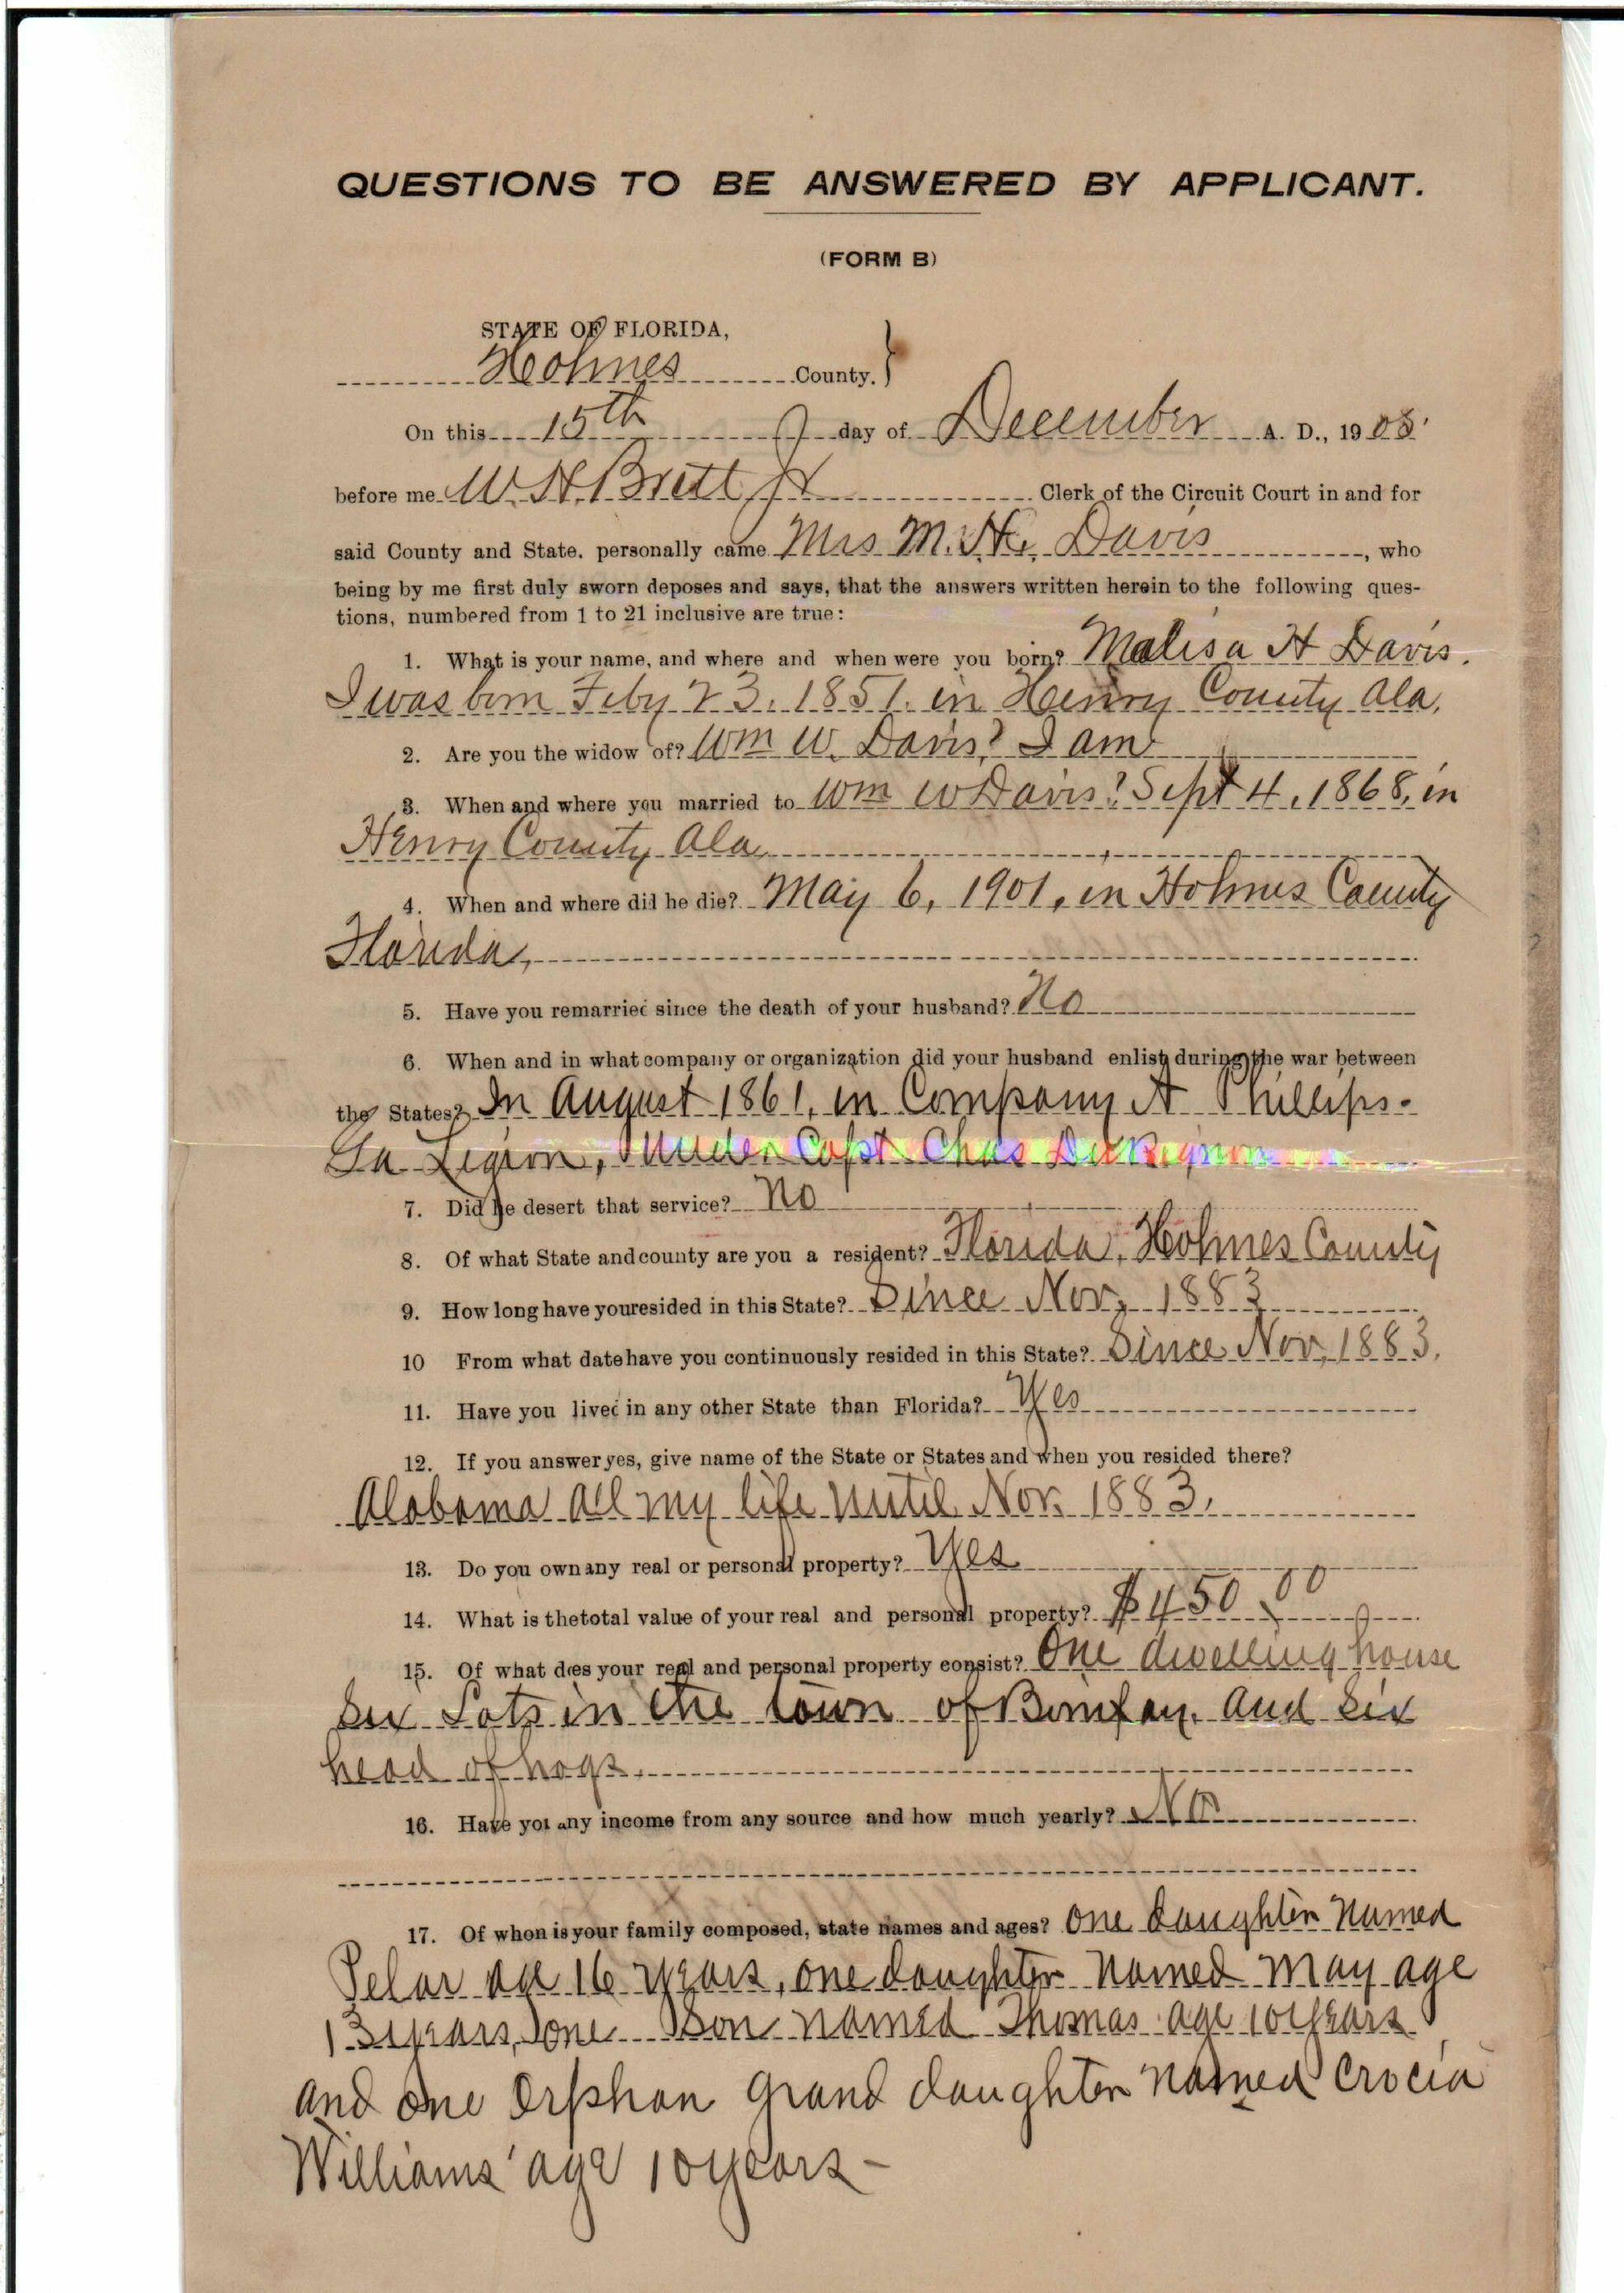 QUESTIONS TO BE ANSWERED BY APPLICANT.
(FORM B)
STATE OF FLORIDA,
Holmes County. }
On this 15th day of December A. D., 1908
before me W. H. Brett Jr Clerk of the Circuit Court in and for
said County and State. personally came Mrs M. H. Davis, who
being by me first duly sworn deposes and says, that the answers written herein to the following ques-
tions, numbered from 1 to 21 inclusive are true:
1. What is your name, and where and when were you born? Malisa H Davis.
I was born Feby 23. 1851. in Henry County Ala.
2. Are you the widow of? Wm W. Davis? I am
3. When and where you married to Wm W Davis? Sept 4, 1868, in
Henry County Ala
4. When and where did he die? May 6, 1901, in Holmes County
Florida,
5. Have you remarried since the death of your husband? No
6. When and in what company or organization did your husband enlist during the war between
the States? In August 1861, in Company A Phillips-
Ga Legion, under Capt Chas
7. Did he desert that service? No
8. Of what State and county are you a resident? Florida, Holmes County
9. How long have you resided in this State? Since Nov, 1883
10 From what date have you continuously resided in this State? Since Nov, 1883.
11. Have you lived in any other State than Florida? Yes
12. If you answer yes, give name of the State or States and when you resided there?
Alabama all my life until Nov. 1883.
13. Do you own any real or personal property? Yes
14. What is the total value of your real and personal property? $450.00
15. Of what does your real and personal property consist? One dwelling house
six Lots in the town of Bonifay. and six
head of hogs.
16. Have you any income from any source and how much yearly? No
17. Of whom is your family composed, state names and ages? One daughter named
Pelar age 16 years, one daughter named May age
13 years, one Son named Thomas age 10 years
and one Orphan grand daughter named Crocia
Williams age 10 years -